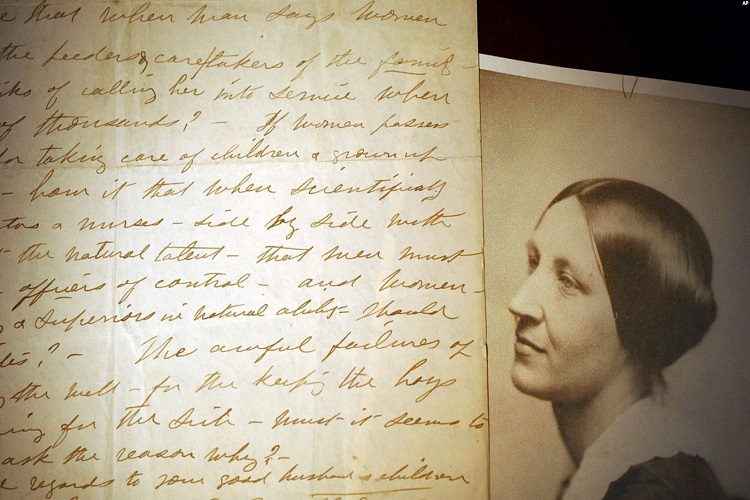 e that when man says women
the feeders & caretakers of the family -
ks of calling her into service when
of thousands? - If women possess
for taking care of children & grown up
- how it that when scientifically
tors & nurses - side by side with
the natural talent - that men must
officers of control - and women -
& superiors in natural ability - should
? - The awful failures of
the well - for the keep'g the boys
ing for the sick - must it seems to
ask the reason why? -
e regards to your good husband & children
AP